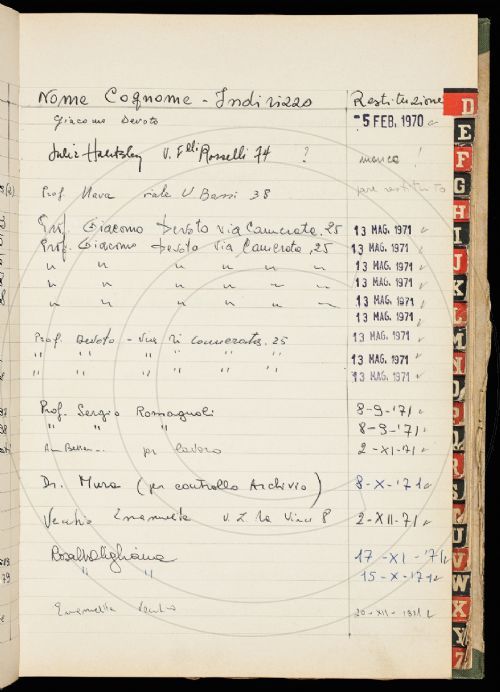 Nome Cognome - Indirizzo Restituzione
Giacomo Devoto -5 FEB. 1970
V. F.lli Rosselli 74 ? manca !
Prof. Nava viale U Bassi 38
Prof. Giacomo Devoto via Camerata, 25 13 MAG. 1971
Prof. Giacomo Devoto via Camerata, 25 13 MAG. 1971
" " " " " " 13 MAG. 1971
" " " " " " 13 MAG. 1971
" " " " " " 13 MAG. 1971
13 MAG. 1971
Prof. Devoto - Via di Camerata. 25 13 MAG. 1971
" " " " " " 13 MAG. 1971
" " " " " " 13 MAG. 1971
Prof. Sergio Romagnoli 8-9-'71
" " " 8-9-'71
per lavoro 2-XI-71
Dr. Mura (per controllo Archivio) 8-X-'71
Emanuela V. L. da Vinci 8 2-XII-71
17-XI-'71
" " 15-X-'71
20-XII-1971
D
E
F
G
H
I
J
K
L
M
N
O
P
Q
R
S
T
U
V
W
X
Y
Z